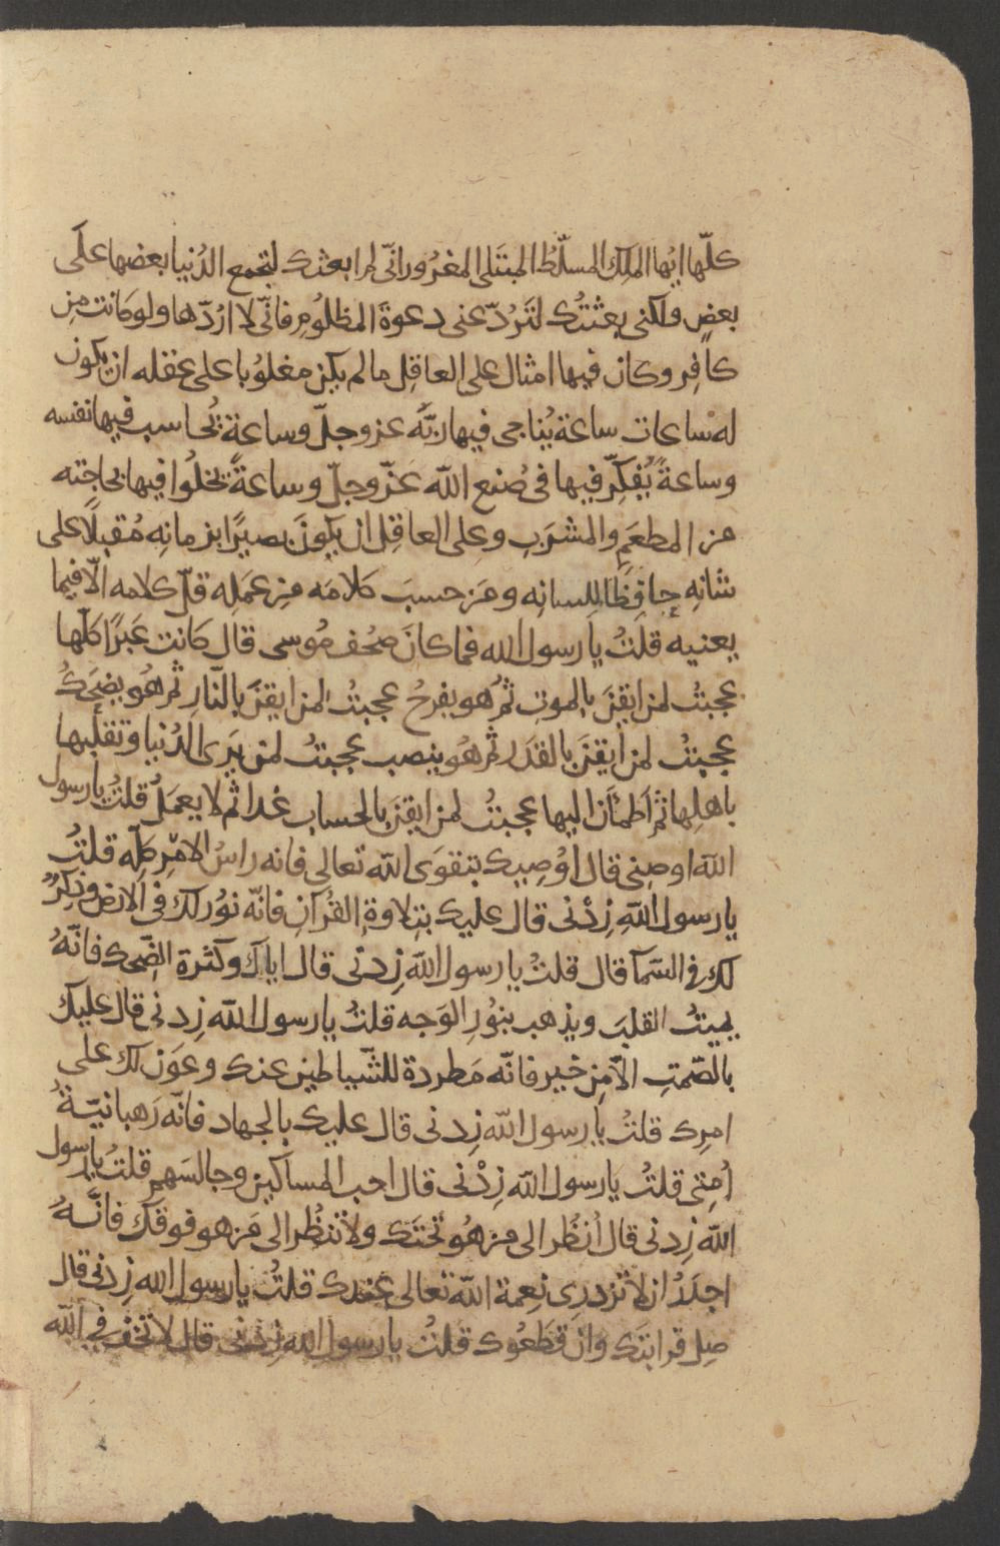 كلّها ايها الملك المسلّط المبتلى المغرور انّى لم ابعثك لتجمع الدُنيا بعضها على
بعضٍ ولكنى بعثتُك لتَردّ عنى دعوةَ المظلُومِ فانّى لا اردّها ولو كانت مِن
كافِرٍ وكان فيها امثال على العاقِل مالم يكن مغلوُبا على عقله ان يكون
له ساعات ساعة يُناجى فيها ربَّه عز وجلّ وساعة يُحاسب فيها نفسه
وساعةً يُفكِّر فيها فى صُنع اللّه عَزّ وجلّ وساعةً يخلُوا فيها بحاجته
من المطعَمِ والمشرَبِ وعلى العاقِل ان يكونَ بصيرًا بزمانِه مُقبلًا على
شانِه حافِظًا للِسانِه ومَن حسبَ كلامَه مِن عَمَلِه قلّ كلامه الّا فيما
يعنيه قلتُ يا رسول الله فما كانَ صحُف مُوسى قال كانت عِبَرًا كلّها
عجبتُ لمن ايقنَ بالموتِ ثم هُو يفرحُ عجبتُ لمن ايقنَ بالنّارِ ثم هُو يضحَكُ
عجبتُ لمن أيقنَ بالقدَر ثم هُو ينصب عجبتُ لمن يَرى الدُنيا وتقلّبها
باهلِها ثم أطمأنّ اليها عجبتُ لمن ايقنَ بالحساب غدا ثم لا يعمَلُ قلتُ يا رسول
اللّه اوصِنى قال أوُصِيك بتقوَى اللّه تعالى فانه راسُ الامْرِ كلِّه قلتُ
يا رسول اللّهِ زِدْنى قال عليك بتِلاوةِ القُرآنِ فانّه نوُر لك فى الارض وذِكرٌ
لك فى السّمآ قال قلتُ يا رسول اللّه زِدنى قال اياك وكثرة الضِّحك فانّهُ
يميتُ القلبَ ويذهب بنُورِ الوَجه قلتُ يا رسول اللّه زِدنى قال عليك
بالصّمتِ الّا مِن خير فانّه مَطردة للشّياطين عنك وعَون لك على
امرِك قلتُ يا رسول اللّه زِدنى قال عليك بالجهاد فانّه رَهبانيّةُ
اُمتِى قلتُ يا رسول اللّه زِدْنى قال احب المساكين وجالسَهم قلتُ يا رسول
اللّه زِدنى قال أنظُر الى من هُو تَحتَك ولا تنظُر الى مَن هو فوقك فانّهُ
اجدَرُ ان لا تزدرِى نِعمة اللّه تعالى عندك قلتُ يا رسول الله زِدنى قال
صِل قرابتَك وان قطَعُوك قلتُ يا رسول الله زدنى قال لا تخف فى اللّه